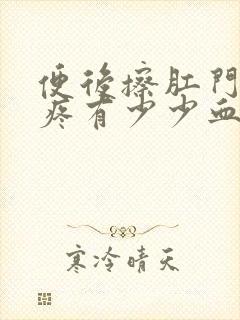 便後擦肛門
疼有少少血
寒冷晴天